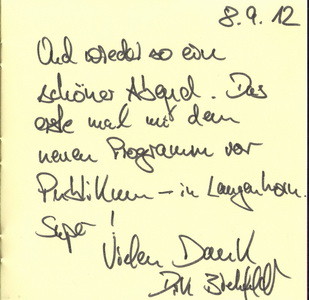 8.9.12
Und wieder so ein
schöner Abend. Das
erste mal mit dem
neuen Programm vor
Publikum – in Langenhorn.
Super!
Vielen Dank